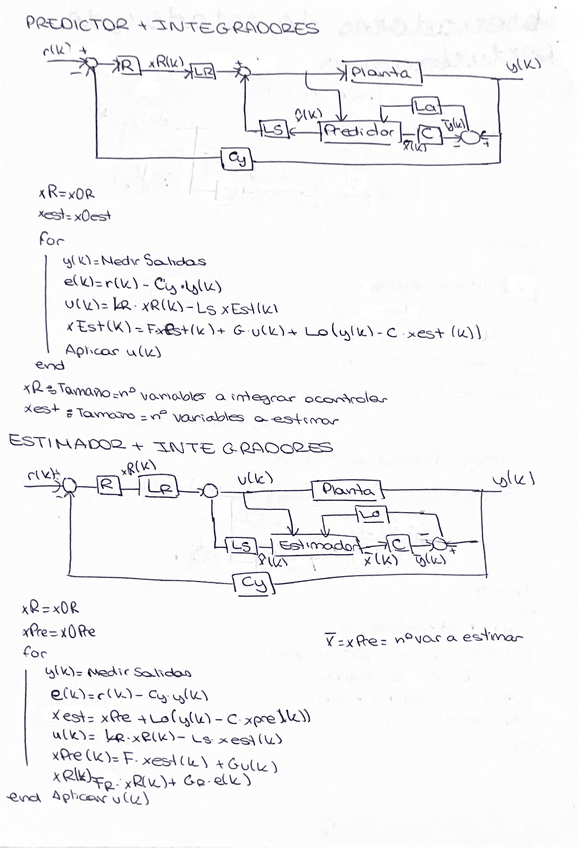 PREDICTOR + INTEGRADORES
r(k) + - R xR(k) LR + Planta y(k)
LS x̂(k) Predictor Lo x̄(k) C ȳ(k) - +
Cy
xR=xOR
xest=xOest
for
y(k)=Medir Salidas
e(k)=r(k) - Cy·y(k)
u(k)= LR· xR(k) - Ls xEst(k)
xEst(k)= FxEst(k) + G·u(k) + Lo(y(k) - C·xest (k))
Aplicar u(k)
end
xR=Tamaño=nº variables a integrar o controlar
xest = Tamaño = nº variables a estimar
ESTIMADOR + INTEGRADORES
r(k) + R xR(k) LR u(k) Planta y(k)
LS x̂(k) Estimador Lo x̄(k) C ȳ(k) - +
Cy
xR=xOR
xPre=xOPre
x̄=xPre= nº var a estimar
for
y(k)=Medir Salidas
e(k)=r(k) - Cy·y(k)
xest= xPre + Lo(y(k) - C·xpre(k))
u(k)= LR·xR(k) - Ls·xest(k)
xPre(k)= F·xest(k) + Gu(k)
xR(k)= FR·xR(k) + GR·e(k)
end Aplicar u(k)